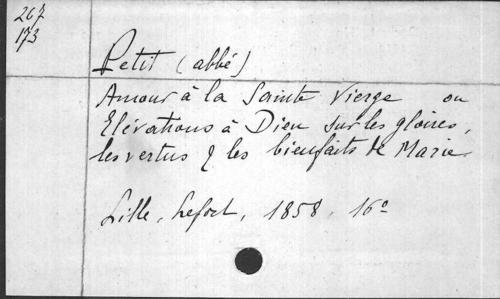 267
173
Petit (abbé)
Amour à la Sainte Vierge ou
Elévations à Dieu sur les gloires,
les vertus & les bienfaits de Marie
Lille, Lefort, 1858, 16º